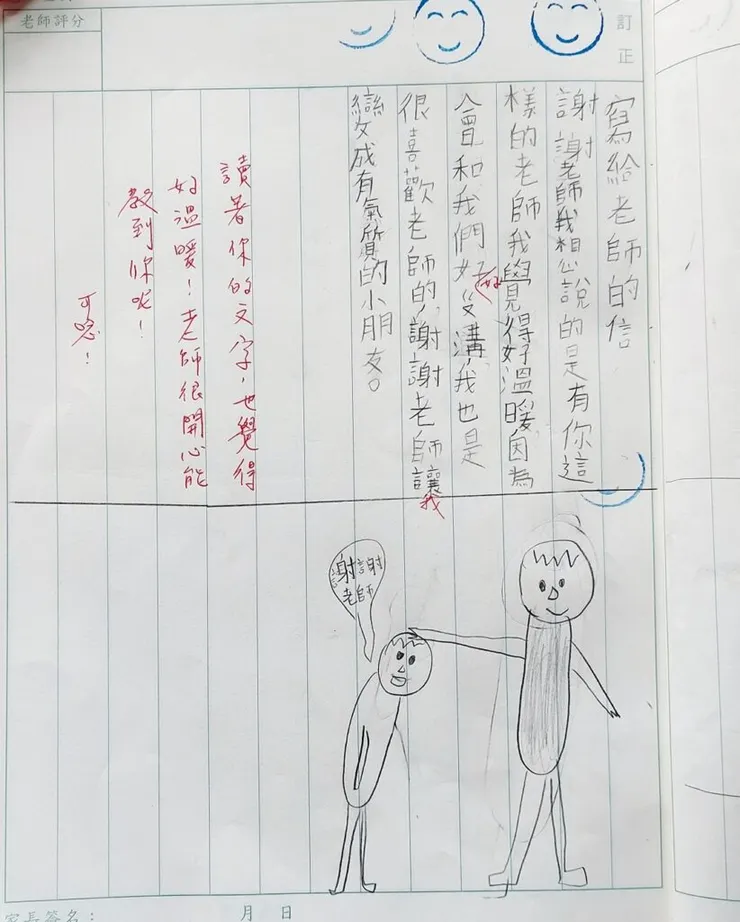 老師評分
訂正
寫給老師的信
謝謝老師我想說的是有你這
樣的老師我覺得好溫暖因為
會和我們好好溝我也是
很喜歡老師的,謝謝老師讓我
變成有氣質的小朋友。
讀著你的文字,也覺得
好溫暖!老師很開心能
教到你呢!
可唸!
謝謝
老師
家長簽名:
月 日